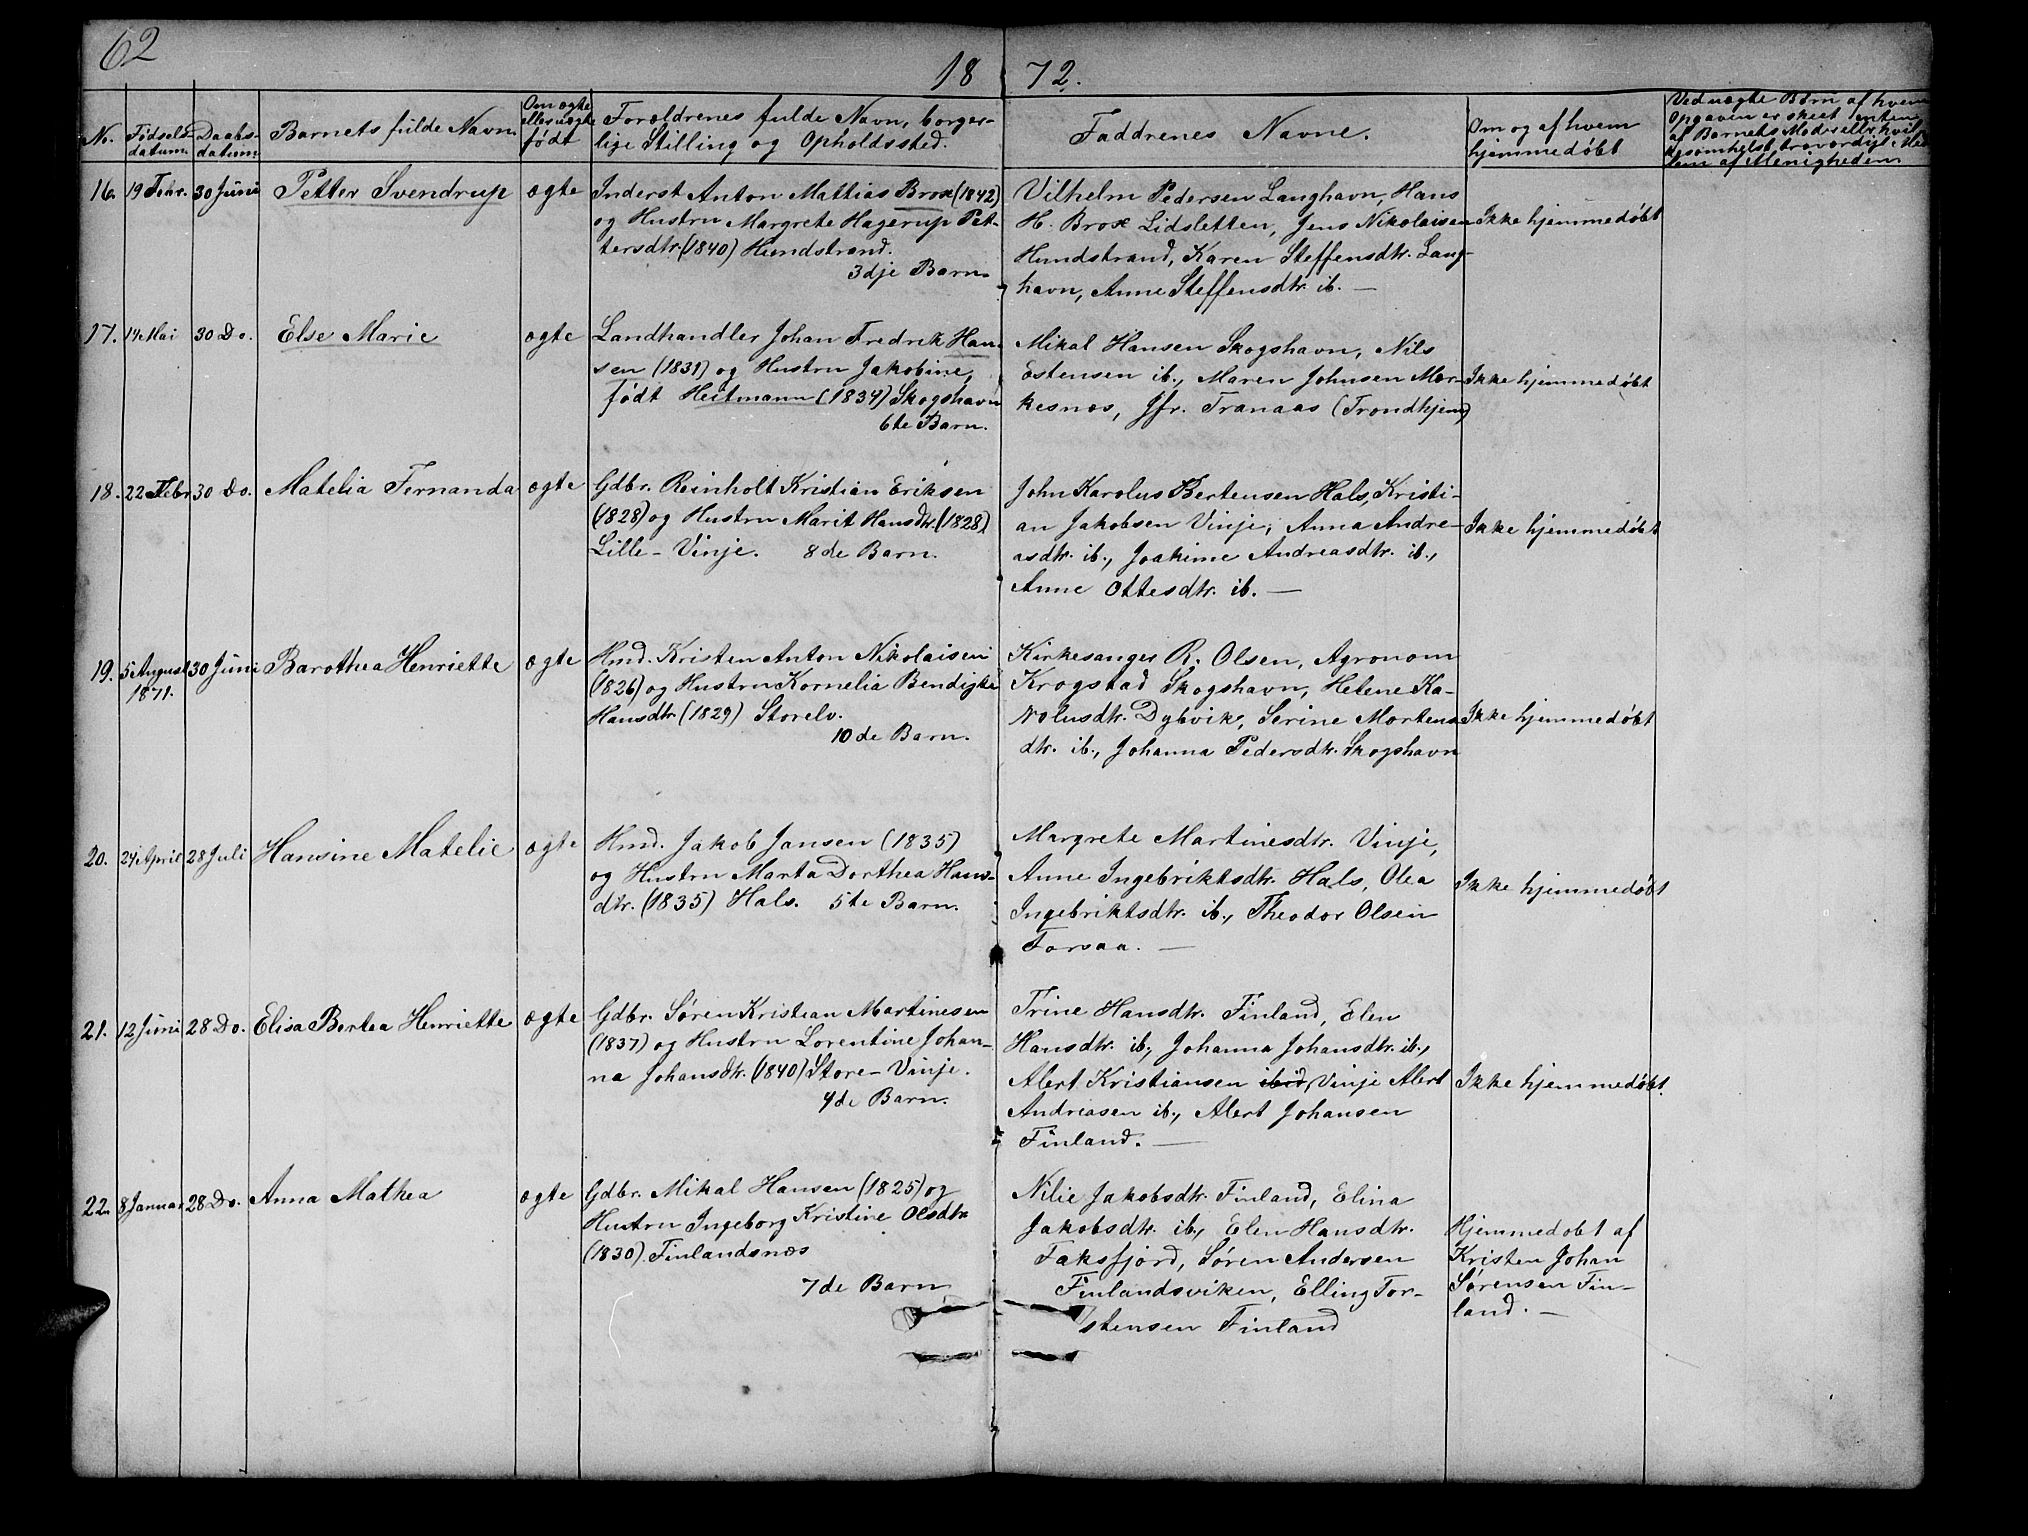 62
18 72.
No.
Fødsels-
datum.
Daabs-
datum
Barnets fulde Navn.
Om ægte
eller uægte
født
Forældrenes fulde Navn, borger-
lige Stilling og Opholdssted.
Faddrenes Navne.
Om og af hvem
hjemmedøbt
Ved uægte Børn af hvem
Opgaven er skeet enten
af Barnets Moder eller hvil
troværdigt Med
lem af Menigheden
16. 19 Febr. 30 Juni Petter Svendrup ægte
Inderst Anton Mattias Brox (1842)
og Hustru Margrete Hagerup Pet-
tersdtr. (1840) Hundstrand.
3dje Barn.
Vilhelm Pedersen Langhavn, Hans
H. Brox Lidsletten, Jens Nikolaisen
Hundstrand, Karen Steffensdtr. Lang-
havn, Anne Steffensdtr. ib. —
Ikke hjemmedøbt
17. 14 Mai 30 Do. Else Marie ægte
Landhandler Johan Fredrik Han-
sen (1831) og Hustru Jakobine,
født Heitmann (1834) Skogshavn
6te Barn.
Mikal Hansen Skogshavn, Nils
Estensen ib., Maren Johnsen Mor-
kesnæs, Jfr. Tranaas (Trondhjem)
Ikke hjemmedøbt
18. 22 Febr 30 Do. Matelia Fernanda ægte
Gdbr. Reinholt Kristian Eriksen
(1828) og Hustru Marit Hansdtr. (1828)
Lille-Vinje. 8de Barn.
John Karolus Bertensen Hals, Kristi-
an Jakobsen Vinje, Anna Andre-
asdtr. ib., Joakime Andreasdtr. ib.,
Anne Ottesdtr. ib. —
Ikke hjemmedøbt
19. 5 August 30 Juni Barothea Henriette ægte
1871.
Hmd. Kristen Anton Nikolaisen
(1826) og Hustru Kornelia Bendigte
Hansdtr. (1829) Storelv.
10de Barn.
Kirkesanger R. Olsen, Agronom
Krogstad Skogshavn, Helene Ka-
rolusdtr. Dybvik, Serine Mortens-
dtr. ib., Johanna Pedersdtr. Skogshavn
Ikke hjemmedøbt
20. 24 April 28 Juli Hansine Matelie ægte
Hmd. Jakob Jansen (1835)
og Hustru Marta Dorthea Hans-
dtr. (1835) Hals. 5te Barn.
Margrete Martinesdtr. Vinje,
Anne Ingebriktsdtr. Hals, Olea
Ingebriktsdtr. ib., Theodor Olsen
Forsaa. —
Ikke hjemmedøbt
21. 12 Juni 28 Do. Elisa Bertea Henriette ægte
Gdbr. Søren Kristian Martinesen
(1837) og Hustru Lorentine Johan-
na Johansdtr. (1840) Store-Vinje.
4de Barn.
Trine Hansdtr. Finland, Elen
Hansdtr. ib., Johanna Johansdtr. ib.,
Alert Kristiansen ibid, Vinje Alert
Andreasen ib., Alert Johansen
Finland. —
Ikke hjemmedøbt.
22. 8 Januar 28 Do. Anna Mathea ægte
Gdbr. Mikal Hansen (1825) og
Hustru Ingeborg Kristine Olsdtr.
(1830) Finlandsnæs
7de Barn
Nilie Jakobsdtr. Finland, Elina
Jakobsdtr. ib., Elen Hansdtr.
Faksfjord, Søren Andersen
Finlandsviken, Elling Tor-
stensen Finland
Hjemmedøbt af
Kristen Johan
Sørensen Fin-
land. —